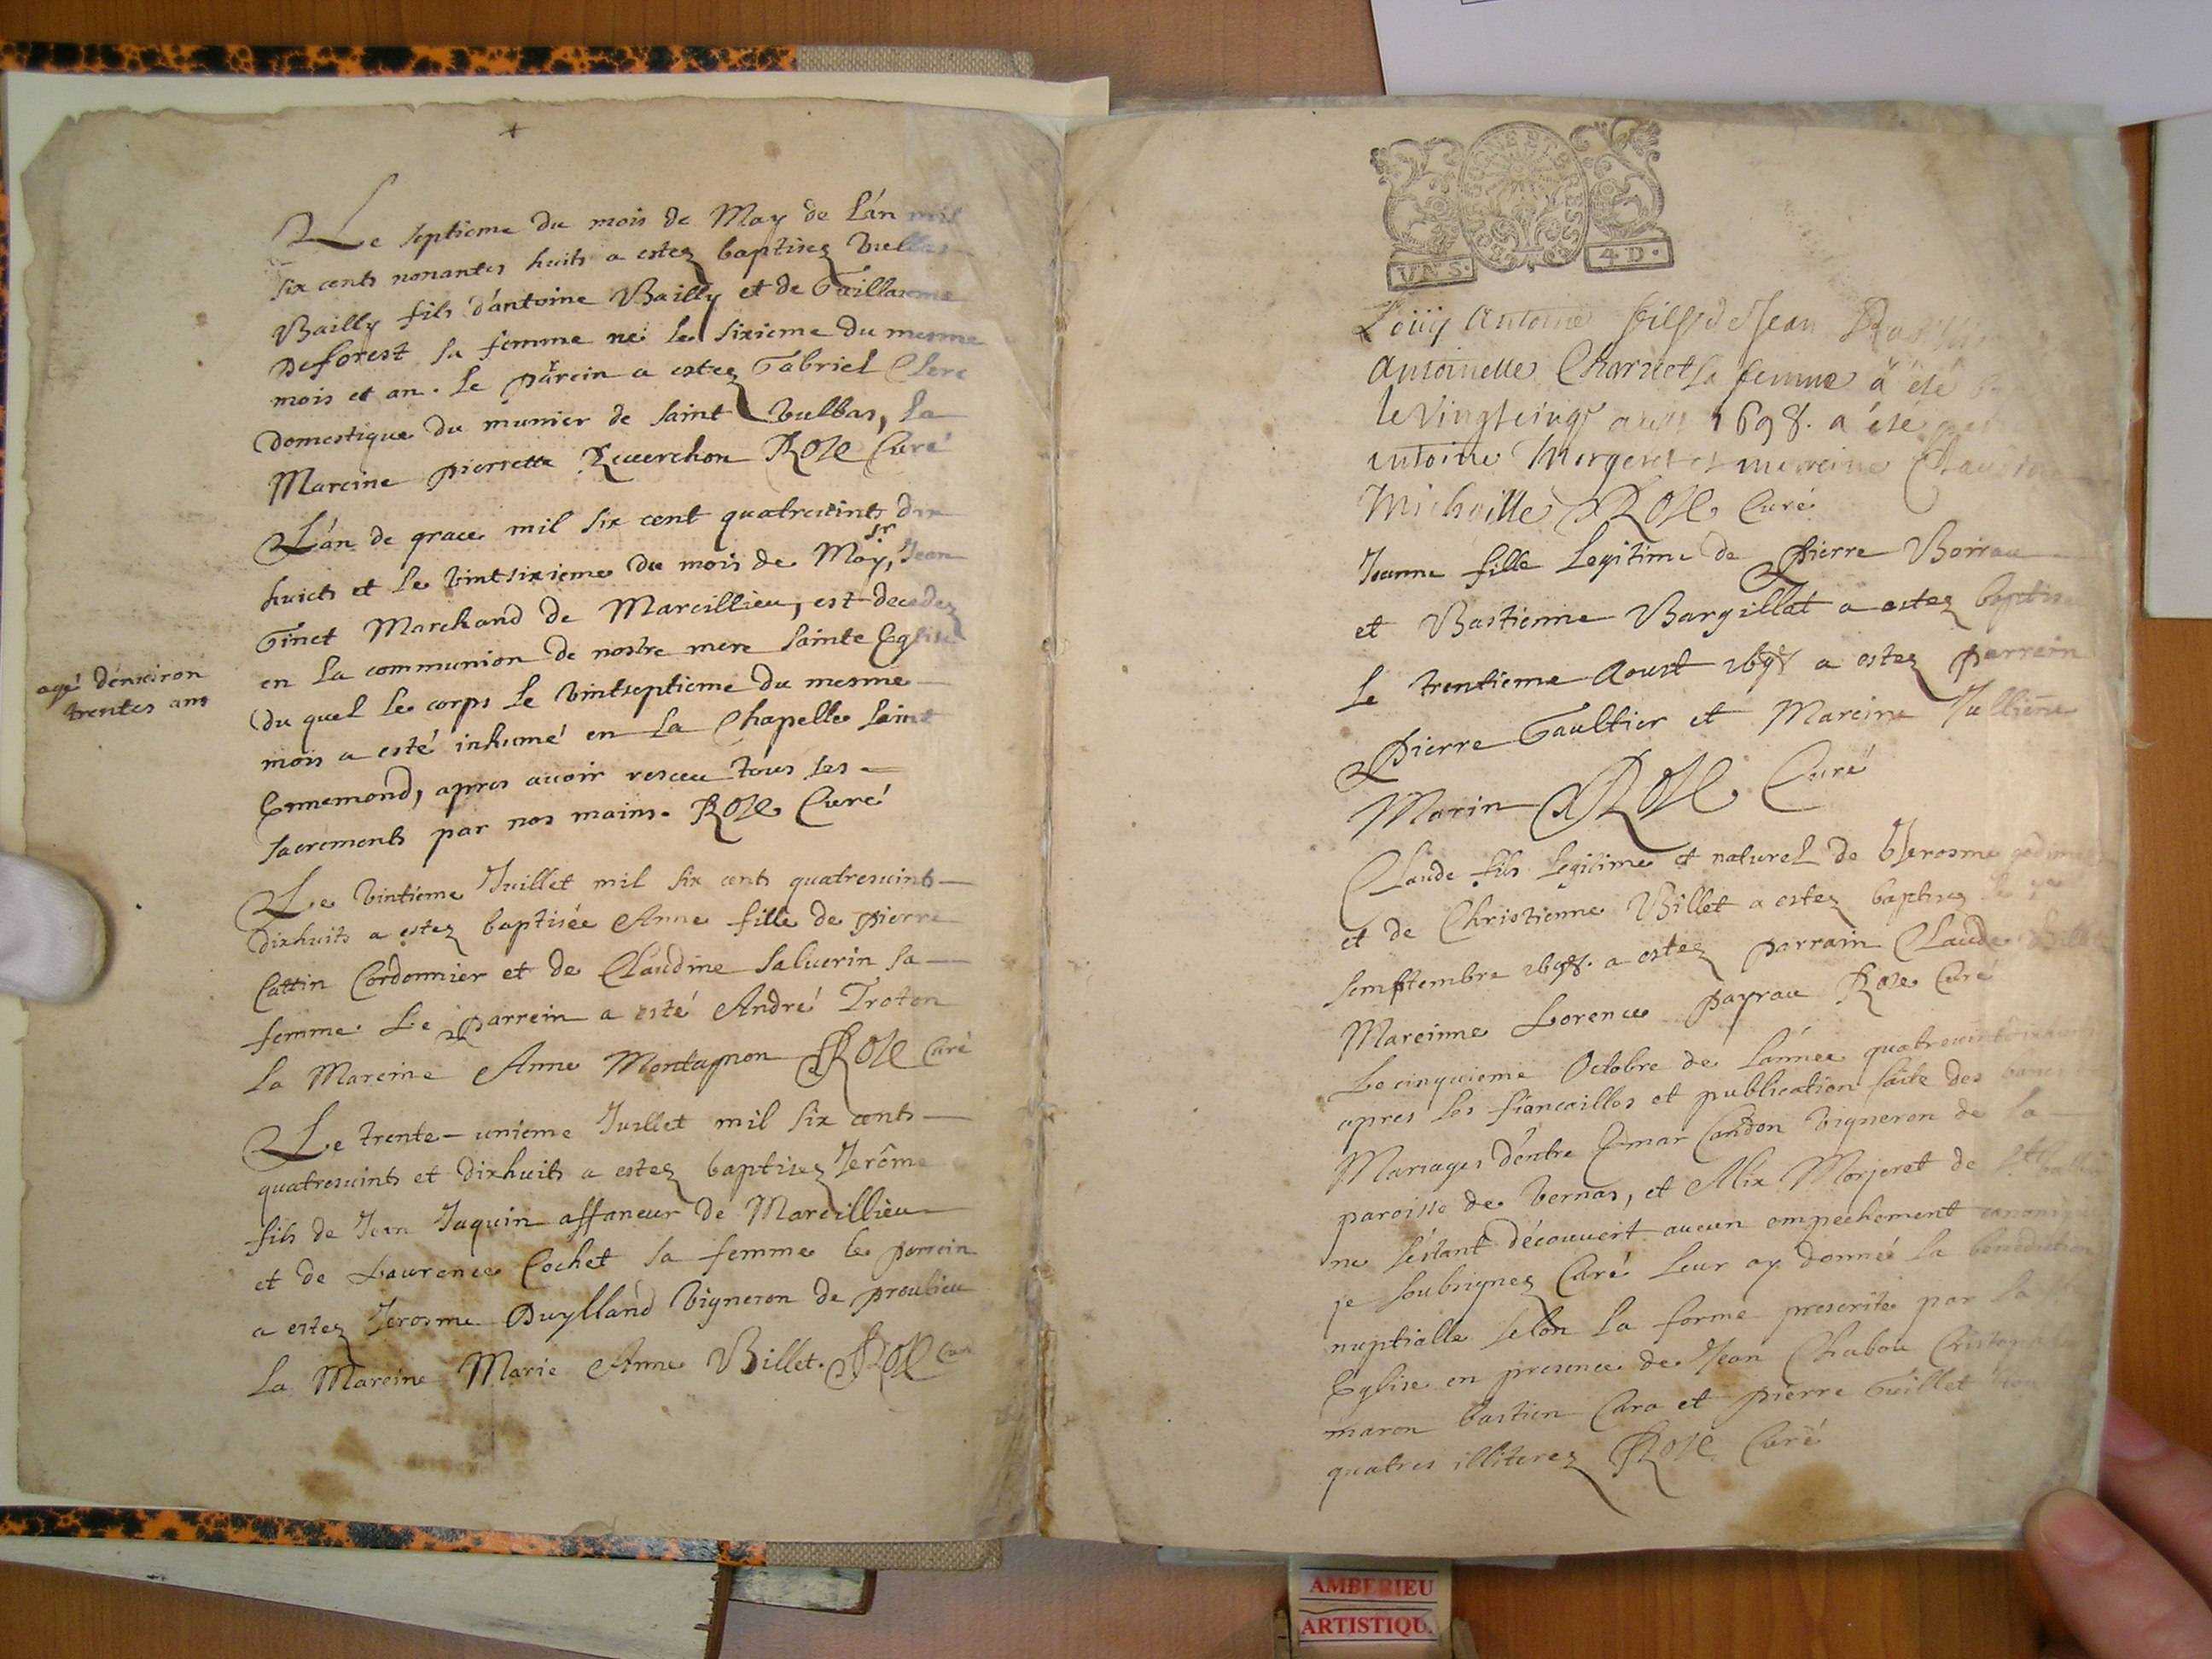 Le septieme du mois de May de l'án mil
six cents nonantes huits a estez baptisez Vulbas
Bailly fils d'antoine Bailly et de Guillarme
Deforest sa femme né le sixieme du mesme
mois et an. le parein a estez Gabriel Clerc
domestique du munier de saint Vulbas, la
Mareine pierrette Reverchon ROZE Curé
L'án de grace mil six cent quatrevints dix
huicts et le vintsixieme du mois de May, sr Jean
Ginet Marchand de Marcillieu, est decedez
en la communion de nostre mere sainte Eglise
agé d'environ
trentes ans
du quel le corps le vintseptieme du mesme
mois a esté inhumé en la Chapelle saint
Ennemond, apres avoir resceu tous les
sacrements par nos mains. ROZE Curé
Le vintieme Juillet mil six cents quatrevints
dixhuits a estez baptisée Anne fille de pierre
Cattin Cordonnier et de Claudine Saluerin sa
femme. Le parrein a esté André Troton
la Mareine Anne Montagnon ROZE Curé
Le trente-unieme Juillet mil six cents
quatrevints et dixhuits a estez baptisez Jerôme
fils de Jean Jaquin affaneur de Marcillieu
et de Laurence Cochet sa femme le parrein
a estez Jerosme Duylland vigneron de proulieu
la Mareine Marie Anne Billet. ROZE Curé
GNE ET
UN S.
4 D.
Louis Antoine fils de Jean
Antoinette Charvet sa femme a été
le vingtcinq aust 1698. a été
antoine Morgeret et mareine Claudine
Michaille ROZE Curé
Jeanne fille Legitime de Pierre Boirau
et Bastienne Bargillat a estez baptisé
le trentieme Aoust 1698 a estez parrein
Pierre Gaultier et Mareine Jullienne
Marin ROZE Curé
Claude fils legitime et naturel de Hierosme
et de Christienne Billet a estez baptisez le
semptembre 1698. a estez parrain Claude Billet
Mareinne Lorence Payrau Roze Curé
Le cinquieme Octobre de l'année
apres les fiancailles et publication faite des bancs
Mariages d'entre Emar Candon vigneron de la
paroisse de vernas, et Alix Morjeret de
ne s'éstant découvert aucun empechement canonique
je soubsignez Curé leur ay donné la benediction
nuptialle selon la forme prescrite par la
Eglise en presence de Jean Chabou
maron bastien Cara et pierre Guillet tous
quatres illiterez ROZE Curé
AMBERIEU
ARTISTIQU.